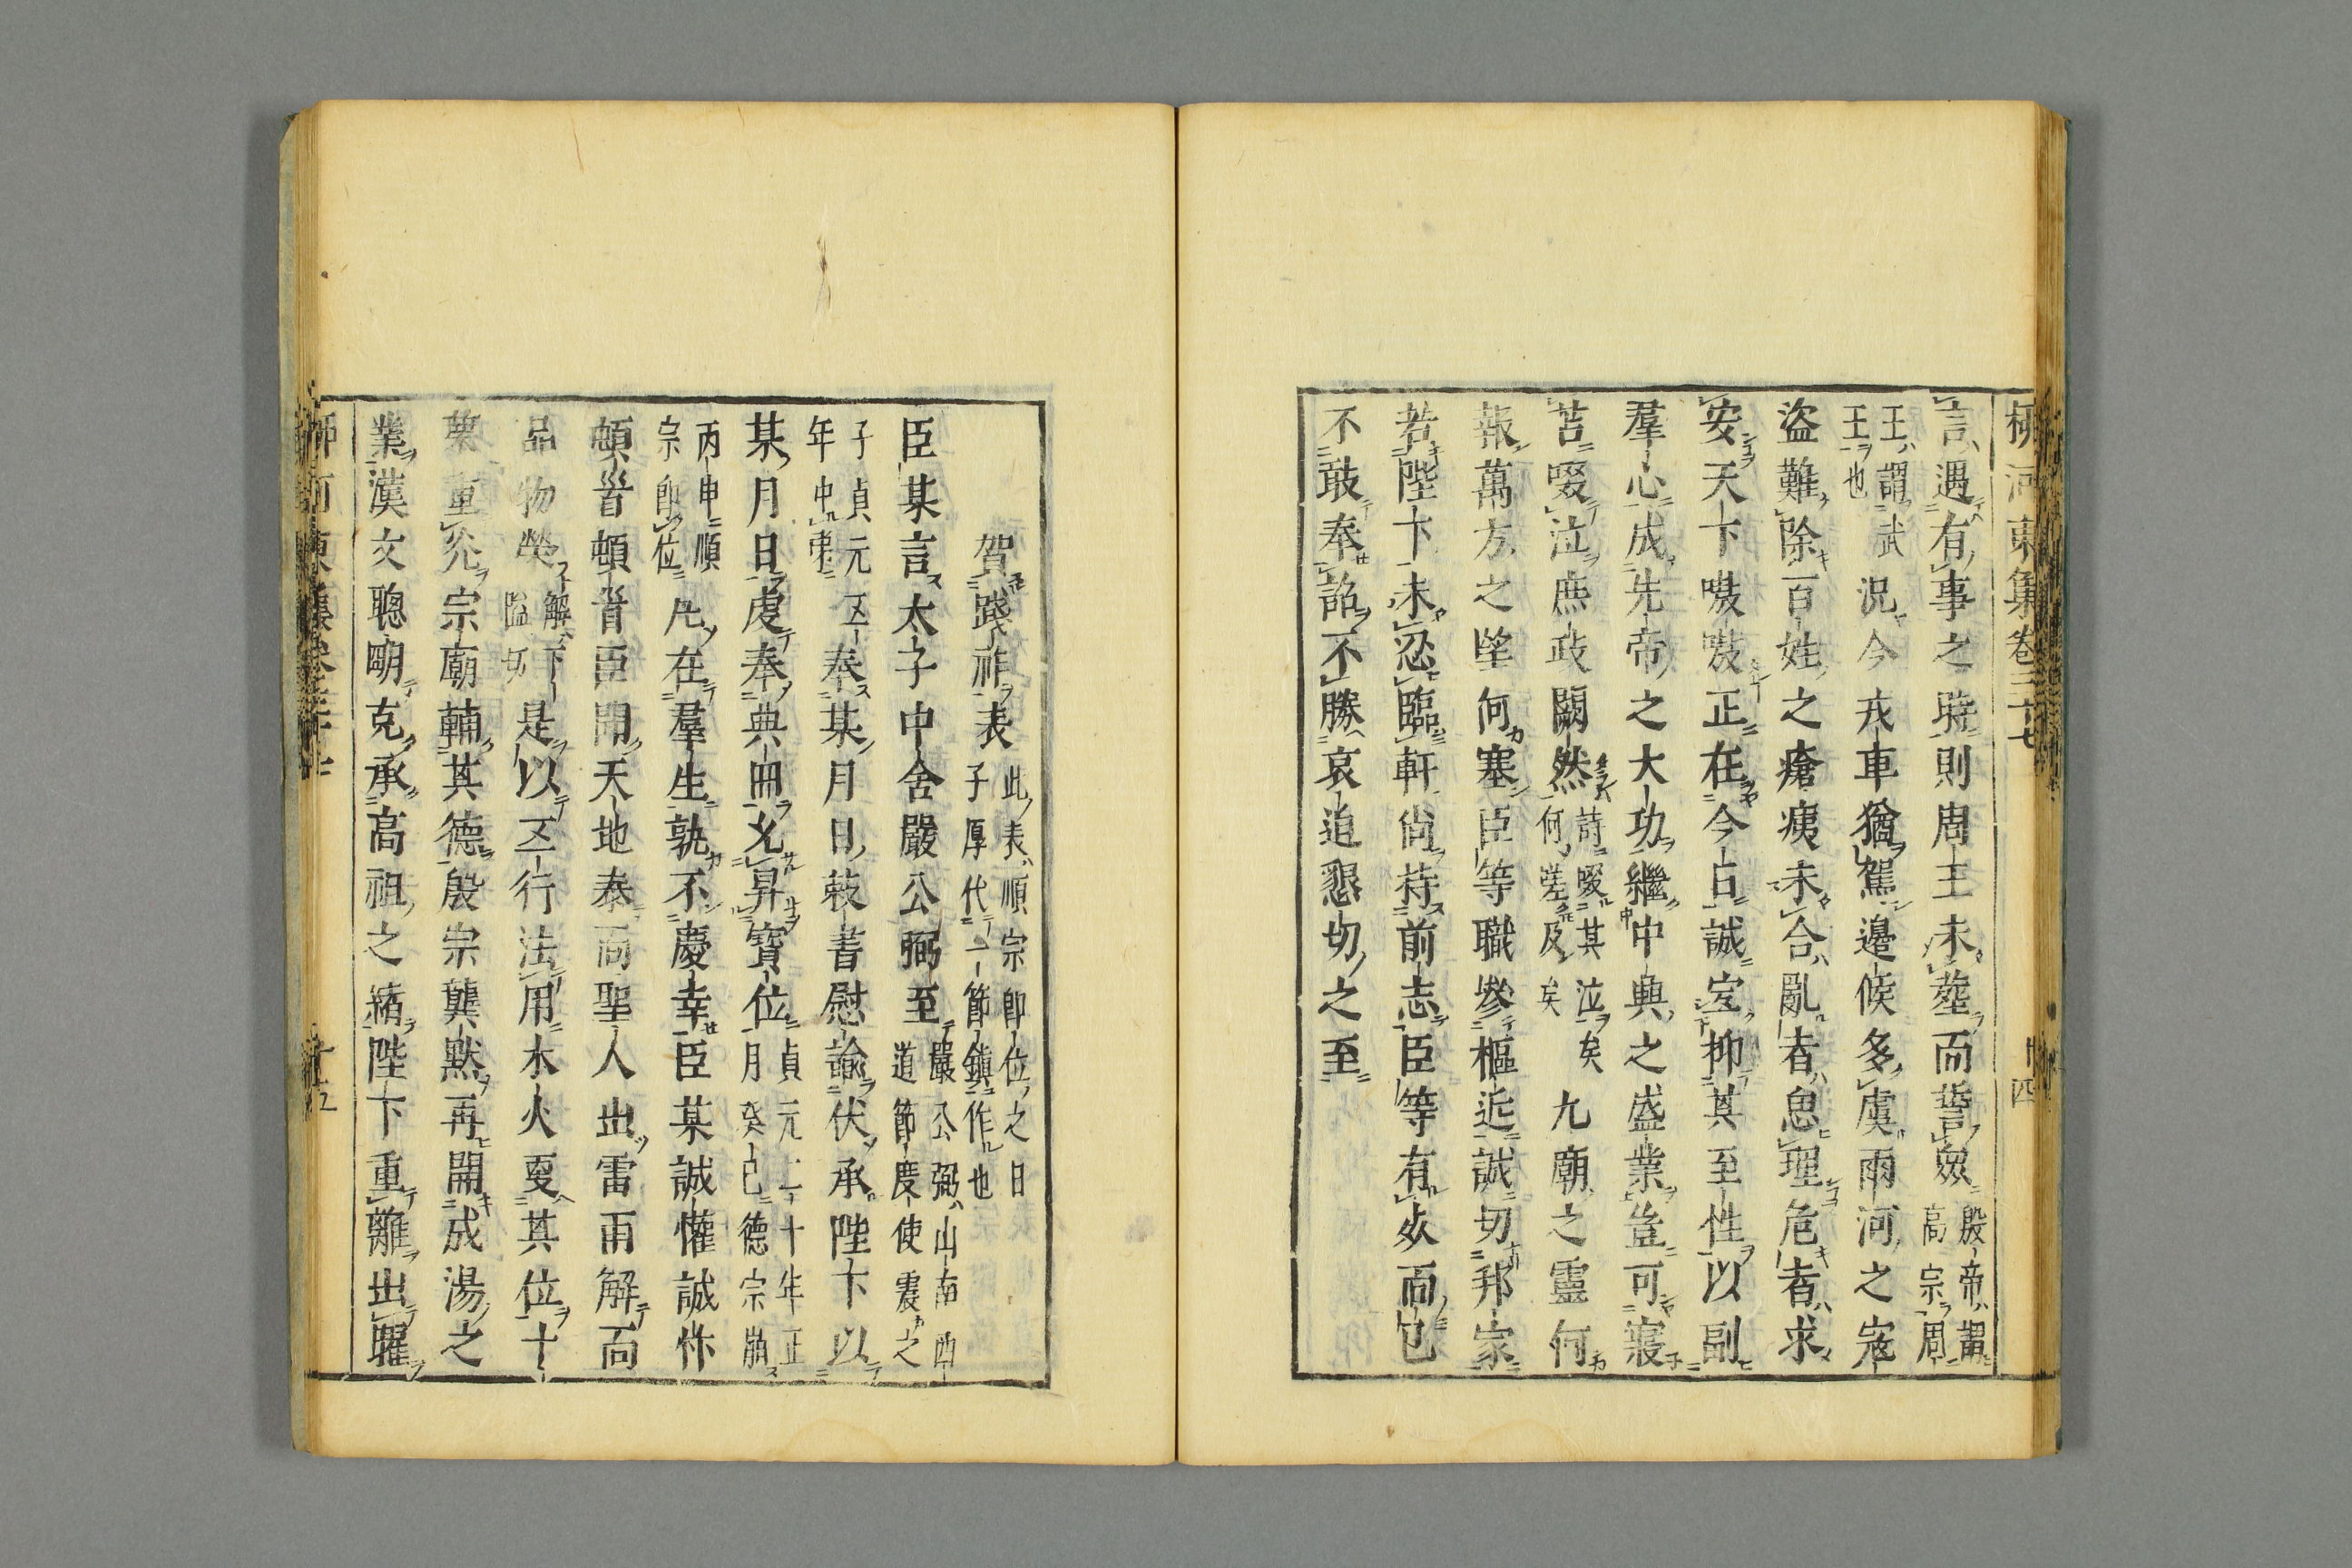 柳河東集卷三十七
十四
言遇有事之時則周王未葬而誓衆殷帝謂高宗周
王謂武王也況今戎車猶駕邊候多虞兩河之寇
盜難除百姓之瘡痍未合亂者思理危者求
安天下嗷嗷正在今日誠宜抑其至性以副
羣心成先帝之大功繼中興之盛業豈可寢
苫啜泣庶政闕然詩啜其泣矣何嗟及矣九廟之靈何
報萬方之望何塞臣等職叅樞近誠切邦家
若陛下未忍臨軒尚持前志臣等有死而已
不敢奉詔不勝哀追懇切之至
賀踐祚表此表順宗即位之日子厚代一節鎮作也
臣某言太子中舍嚴公弼至嚴公弼山南西道節度使震之
子貞元五年中第奉某月日敕書慰諭伏承陛下以
某月日虔奉典冊允昇寶位貞元二十年正月癸已德宗崩
丙申順宗即位凡在羣生孰不慶幸臣某誠懽誠忭
頓首頓首臣聞天地泰而聖人出雷雨解而
品物榮解下隘切是以五行法用木火更其位十
葉重光宗廟輔其德殷宗龔默再開成湯之
業漢文聰明克承高祖之緒陛下重離出曜
柳河東集卷三十七
十五